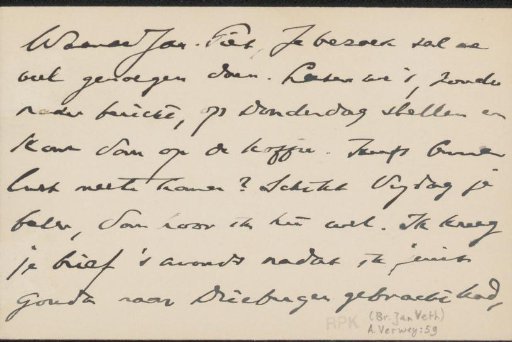 Waarde Jan. Piet, Je bezoek zal me
veel genoegen doen. Laten we 't, zonder
nader bericht, op Donderdag stellen en
kom dan op de koffie.
lust mee te komen? Schikt Vrijdag je
beter, dan hoor ik het wel. Ik kreeg
je brief 's avonds nadat ik juist
Gouda naar Driebergen gebracht had,
RPK (Br. Jan Veth)
A. Verwey: 59